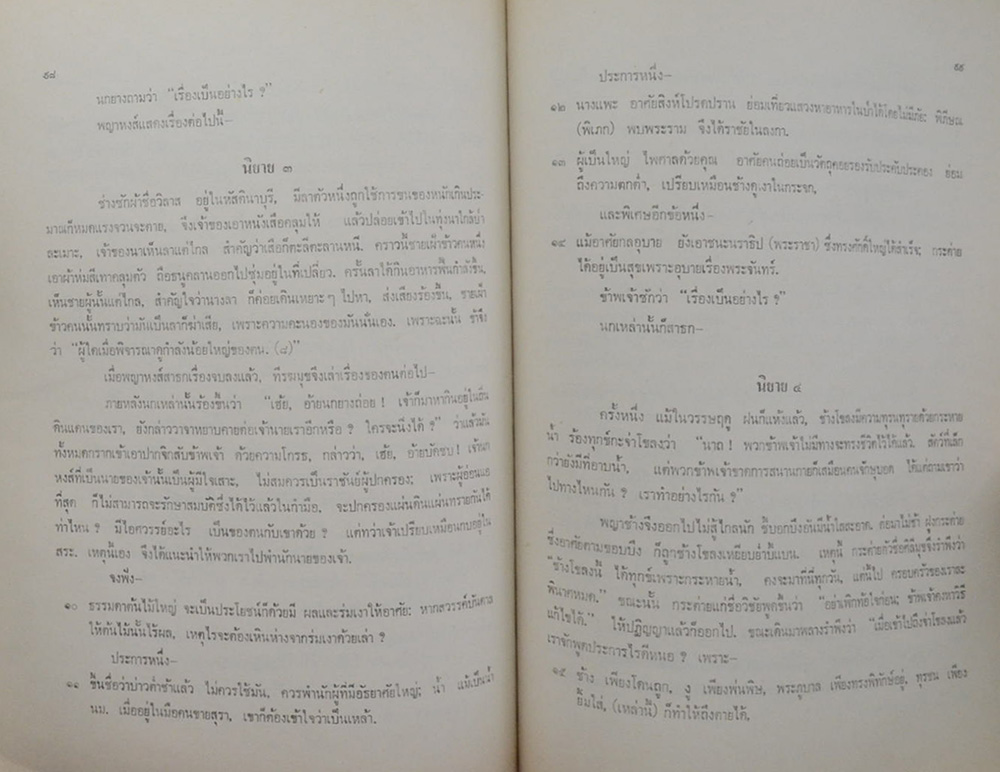 ๙๘
นกยางถามว่า “เรื่องเป็นอย่างไร ?”
พญาหงส์แสดงเรื่องต่อไปนี้—
นิยาย ๓
ช่างซักผ้าชื่อวิลาส อยู่ในหัสดินาบุรี, มีลาตัวหนึ่งถูกใช้การขนของหนักเกินประ-
มาณก็หมดแรงจวนจะตาย, จึงเจ้าของเอาหนังเสือคลุมให้ แล้วปล่อยเข้าไปในทุ่งนาใกล้ป่า
ละเมาะ, เจ้าของนาเห็นลาแต่ไกล สำคัญว่าเสือก็ตะลีตะลานหนี. คราวนี้ชายเฝ้าข้าวคนหนึ่ง
เอาผ้าห่มสีเทาคลุมตัว ถือธนูคลานออกไปซุ่มอยู่ในที่เปลี่ยว. ครั้นลาได้กินอาหารฟื้นกำลังขึ้น,
เห็นชายผู้นั้นแต่ไกล, สำคัญใจว่านางลา ก็ค่อยเดินเหยาะๆ ไปหา, ส่งเสียงร้องขึ้น, ชายเฝ้า
ข้าวคนนั้นทราบว่ามันเป็นลาก็ฆ่าเสีย, เพราะความคะนองของมันนั่นเอง. เพราะฉะนั้น ข้าจึง
ว่า “ผู้ใดเมื่อพิจารณาดูกำลังน้อยใหญ่ของตน. (๘)”
เมื่อพญาหงส์สาธกเรื่องจบลงแล้ว, ทีรฆมุขจึงเล่าเรื่องของตนต่อไป—
ภายหลังนกเหล่านั้นร้องขึ้นว่า “เฮ้ย, อ้ายนกยางถ่อย ! เจ้าก็มาหากินอยู่ในถิ่น
ดินแดนของเรา, ยังกล่าววาจาหยาบคายต่อเจ้านายเราอีกหรือ ? ใครจะนิ่งได้ ?” ว่าแล้วมัน
ทั้งหมดกรากเข้าเอาปากจิกสับข้าพเจ้า ด้วยความโกรธ, กล่าวว่า, เฮ้ย, อ้ายบัดซบ ! เจ้านก
หงส์ที่เป็นนายของเจ้านั้นเป็นผู้มีใจเสาะ, ไม่สมควรเป็นราชันย์ผู้ปกครอง; เพราะผู้อ่อนแอ
ที่สุด ก็ไม่สามารถจะรักษาสมบัติซึ่งได้ไว้แล้วในกำมือ. จะปกครองแผ่นดินแผ่นทรายกันได้
ท่าไหน ? มีไอศวรรย์อะไร เป็นของตนกับเขาด้วย ? แต่ทว่าเจ้าเปรียบเหมือนกบอยู่ใน
สระ. เหตุนี้เอง จึงได้แนะนำให้พวกเราไปพำนักนายของเจ้า.
จงฟัง—
๑๐ ธรรมดาต้นไม้ใหญ่ จะเป็นประโยชน์ก็ด้วยมี ผลและร่มเงาให้อาศัย: หากสวรรค์บันดาล
ให้ต้นไม้นั้นไร้ผล, เหตุไรจะต้องเหินห่างจากร่มเงาด้วยเล่า ?
ประการหนึ่ง—
๑๑ ขึ้นชื่อว่าบ่าวต่ำช้าแล้ว ไม่ควรใช้มัน, ควรพำนักผู้ที่มีอัธยาศัยใหญ่; น้ำ แม้เป็นน้ำ
นม. เมื่ออยู่ในมือคนขายสุรา, เขาก็ต้องเข้าใจว่าเป็นเหล้า.
๙๙
ประการหนึ่ง—
๑๒ นางแพะ อาศัยสิงห์โปรดปราน ย่อมเที่ยวแสวงหาอาหารในป่าได้โดยไม่มีภัย: พิภีษณ
(พิเภก) พบพระราม จึงได้ราชัยในลงกา.
๑๓ ผู้เป็นใหญ่ ไพศาลด้วยคุณ อาศัยคนถ่อยเป็นวัตถุคอยรองรับประคับประคอง ย่อม
ถึงความตกต่ำ, เปรียบเหมือนช้างดูเงาในกระจก.
และพิเศษอีกข้อหนึ่ง—
๑๔ แม้อาศัยกลอุบาย ยังเอาชนะนราธิป (พระราชา) ซึ่งทรงศักดิ์ใหญ่ได้สำเร็จ; กระต่าย
ได้อยู่เป็นสุขเพราะอุบายเรื่องพระจันทร์.
ข้าพเจ้าซักว่า “เรื่องเป็นอย่างไร ?”
นกเหล่านั้นก็สาธก—
นิยาย ๔
ครั้งหนึ่ง แม้ในวรรษฤดู ฝนก็แห้งแล้ว, ช้างโขลงมีความทุรนทุรายด้วยกระหาย
น้ำ ร้องทุกข์กะจ่าโขลงว่า “นาถ ! พวกข้าพเจ้าไม่มีทางจะทรงชีวิตไว้ได้แล้ว. สัตว์ที่เล็ก
กว่ายังมีที่อาบน้ำ, แต่พวกข้าพเจ้าขาดการสนานกายก็เสมือนคนจักษุบอด ได้แต่ถามเขาว่า
ไปทางไหนกัน ? เราทำอย่างไรกัน ?”
พญาช้างจึงออกไปไม่สู้ไกลนัก ชี้บอกบึงอันมีน้ำใสสะอาด. ต่อมาไม่ช้า ฝูงกระต่าย
ซึ่งอาศัยตามขอบบึง ก็ถูกช้างโขลงเหยียบย่ำบี้แบน. เหตุนี้ กระต่ายตัวชื่อศิลีมุขจึงรำพึงว่า
“ช้างโขลงนี้ ได้ทุกข์เพราะกระหายน้ำ, คงจะมาที่นี่ทุกวัน, แต่นี้ไป ครอบครัวของเราจะ
พินาศหมด.” ขณะนั้น กระต่ายแก่ชื่อวิชัยพูดขึ้นว่า “อย่าเพิกทัยใจก่อน; ข้าพเจ้าจะหาวิธี
แก้ไขได้.” ให้ปฏิญญาแล้วก็ออกไป. ขณะเดินมาพลางรำพึงว่า “เมื่อเข้าไปถึงจ่าโขลงแล้ว
เราจักพูดประการไรดีหนอ ? เพราะ—
๑๕ ช้าง เพียงโดนถูก, งู เพียงพ่นพิษ, พระภูบาล เพียงทรงพิทักษ์อยู่, ทุรชน เพียง
ยิ้มใส่, (เหล่านี้) ก็ทำให้ถึงตายได้,